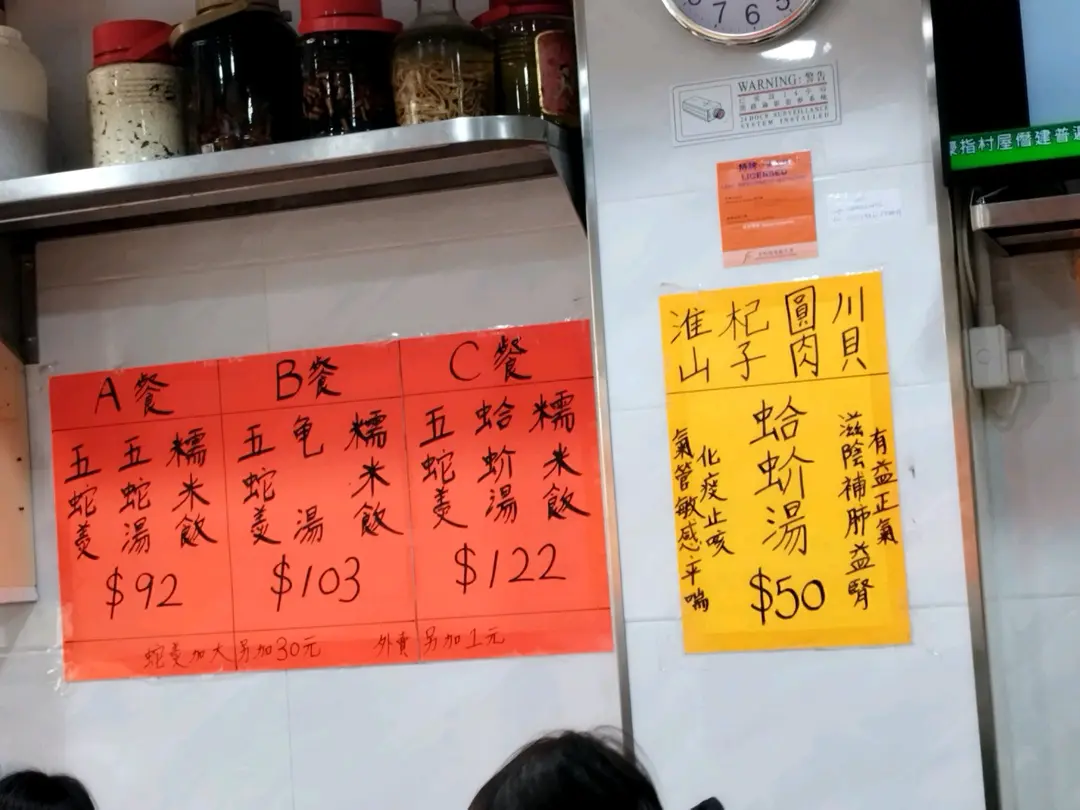 A餐
五蛇羹
五蛇湯
糯米飯
$92
B餐
五蛇羹
龟湯
糯米飯
$103
C餐
五蛇羹
蛤蚧湯
糯米飯
$122
蛇羹加大另加30元
外賣另加1元
川貝
圓肉
杞子
淮山
有益正氣
滋陰補肺益腎
蛤蚧湯
$50
化疫止咳
氣管敏感平喘
WARNING: 警告
24 HOUR SURVEILLANCE
SYSTEM INSTALLED
LICENSED
指村屋僭建普
7 6 5